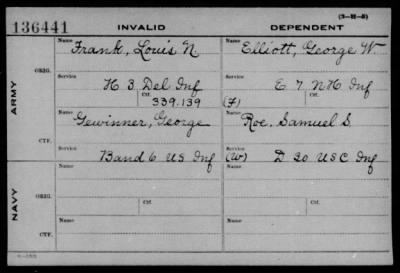 (3-H-5)
136441 INVALID DEPENDENT
Name Frank, Louis N. Name Elliott, George W.
ORIG.
ARMY
Service H 3 Del Inf Service E 7 NH Inf
Ctf. 339.139 (F) Ctf.
Name Gewinner, George Name Roe, Samuel S.
CTF.
Service Band 6 US Inf Service (W) D 20 USC Inf
Name Name
NAVY
ORIG.
Service Ctf. Service Ctf.
Name Name
CTF.
Service Service